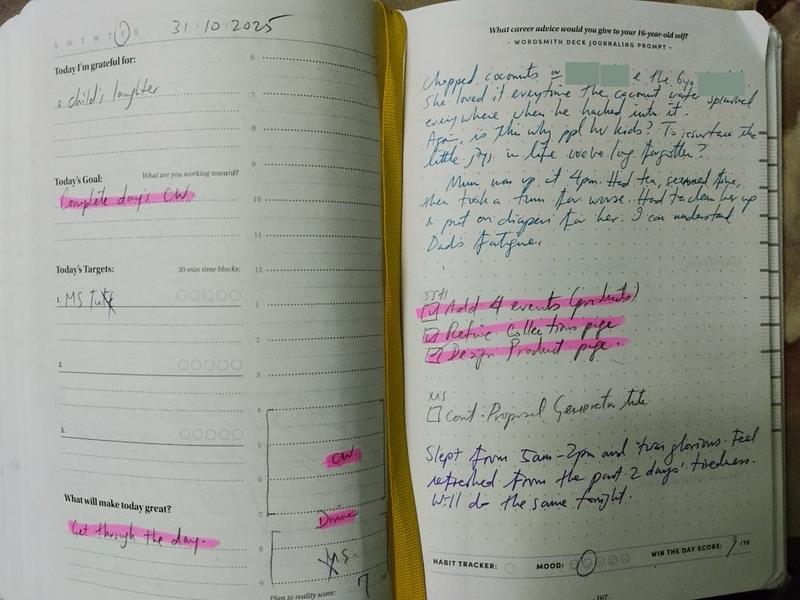 S M T W T F S
31/10/2025
Today I'm grateful for:
a child's laughter
Today's Goal:
What are you working toward?
Complete day's CW
Today's Targets:
30-min time blocks:
1. MS
2.
3.
What will make today great?
Get through the day.
6
7
8
9
10
11
12
1
2
3
4
5
CW
6
7
Dinner
8
MS.
9
Plan to reality score: 7 /10
What career advice would you give to your 16-year-old self?
- WORDSMITH DECK JOURNALING PROMPT -
Chopped coconuts w e the 6yo
She loved it everytime the coconut water splashed
everywhere when he hacked into it.
Again, is this why ppl hv kids? To resurface the
little joys in life we've long forgotten?
Mum was up at 4pm. Had tea, seemed fine,
then took a turn for worse. Had to clean her up
& put on diapers for her. I can understand
Dad's fatigue.
Add 4 events (products)
Refine Collections page
Design Product page.
MS
Cont. Proposal Generator
Slept from 5am-2pm and twas glorious. Feel
refreshed from the past 2 days' tiredness.
Will do the same tonight.
HABIT TRACKER:
MOOD:
WIN THE DAY SCORE: 9 /10
- 167 -